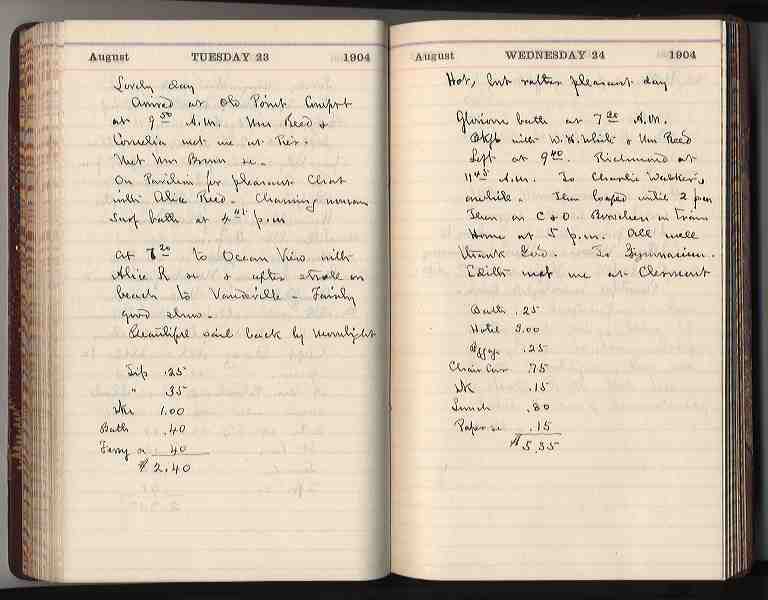 August TUESDAY 23 1904
Lovely day
Arrived at Old Point Comfort
at 9 50 A.M. Mrs Reed &
Cornelia met me at Pier.
Met Mrs Brown &c.
On Pavilion for pleasant Chat
with Alice Reed. Charming
Surf bath at 4 p.m
at 7 20 to Ocean View with
Alice R &c & after stroll on
beach to Vaudeville - Fairly
good show.
Beautiful sail back by moonlight
Tip .25
" 35
1.00
Bath .40
Ferry .40
$ 2.40
August WEDNESDAY 24 1904
Hot, but rather pleasant day
Glorious bath at 7 A.M.
Bkft with W.H. White & Mrs Reed
Left at 9 40. Richmond at
11 45 A.M. To Charlie
awhile. Then loafed until 2 p.m
Then on C & O train
Home at 5 p.m. All well
thank God. To Gymnasium.
Edith met me at Clermont
Bath .25
Hotel 3.00
.25
Chair Car .75
.15
Lunch .80
Paper &c .15
$ 5.35